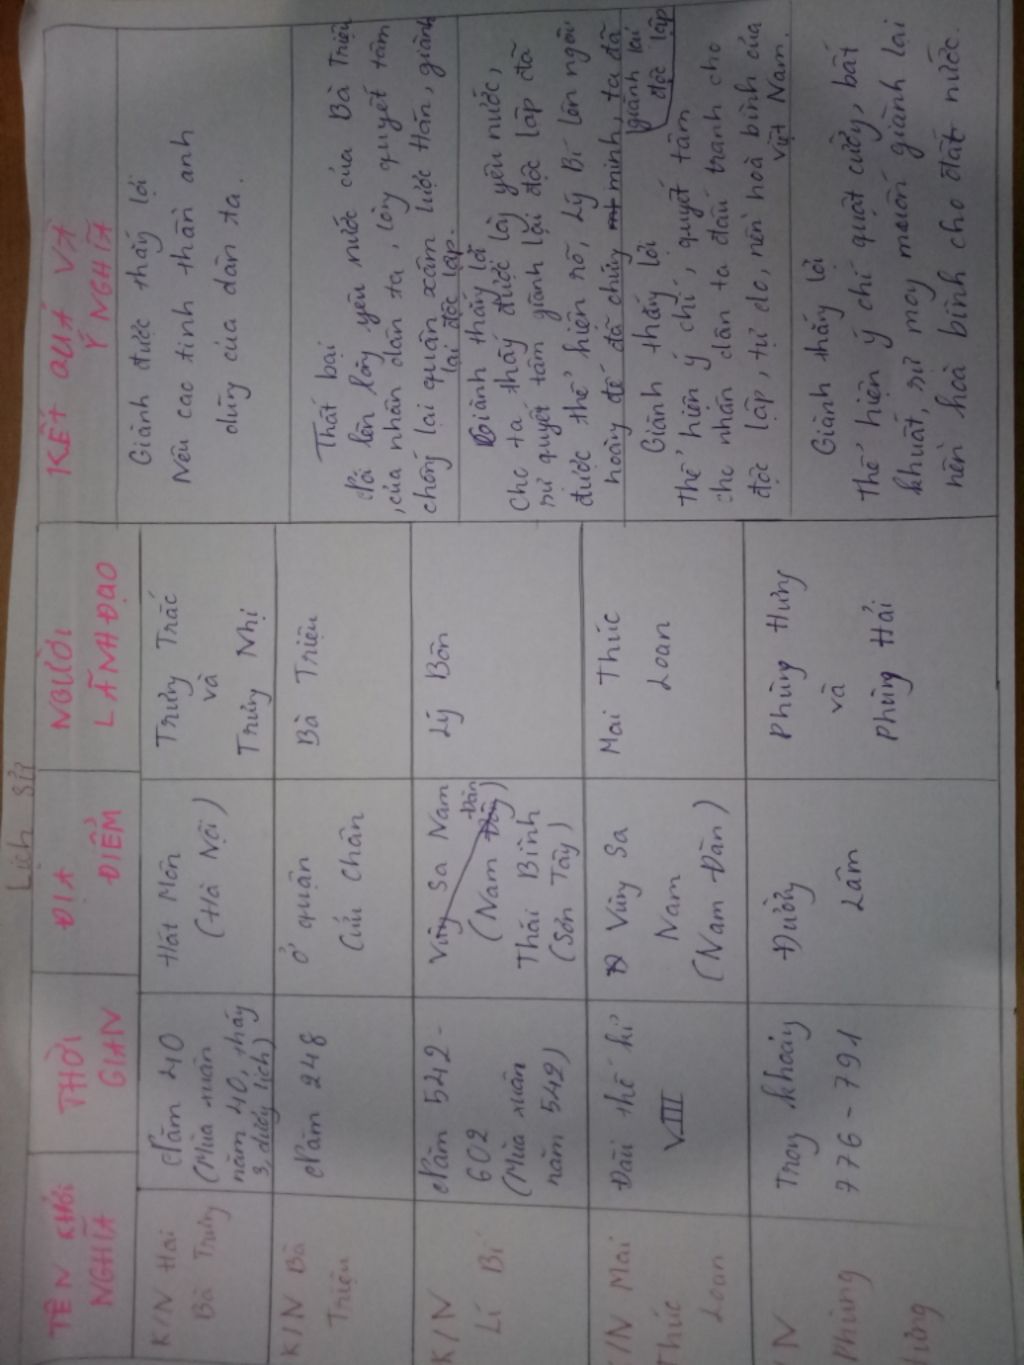 Lịch sử
TÊN KHỞI
NGHĨA
THỜI
GIAN
ĐỊA
ĐIỂM
NGƯỜI
LÃNH ĐẠO
KẾT QUẢ VÀ
Ý NGHĨA
K/N Hai
Bà Trưng
Năm 40
(Mùa xuân
năm 40, tháng
3, dương lịch)
Hát Môn
(Hà Nội)
Trưng Trắc
và
Trưng Nhị
Giành được thắng lợi
Nêu cao tinh thần anh
dũng của dân ta.
K/N Bà
Triệu
Năm 248
Ở quận
Cửu Chân
Bà Triệu
Thất bại
Nói lên lòng yêu nước của Bà Triệu
, của nhân dân ta, lòng quyết tâm
chống lại quân xâm lược Hán, giành
lại độc lập.
K/N
Lí Bí
Năm 542 -
602
(Mùa xuân
năm 542)
Vùng Sa Nam
(Nam Đàn)
Thái Bình
(Sơn Tây)
Lý Bôn
Giành thắng lợi
Cho ta thấy được lòng yêu nước,
sự quyết tâm giành lại độc lập đã
được thể hiện rõ, Lý Bí lên ngôi
hoàng đế đã chứng minh, ta đã
giành lại
độc lập
/N Mai
Thúc
Loan
Đầu thế kỉ
VIII
Vùng Sa
Nam
(Nam Đàn)
Mai Thúc
Loan
Giành thắng lợi
Thể hiện ý chí, quyết tâm
cho nhân dân ta đấu tranh cho
độc lập, tự do, nền hoà bình của
Việt Nam.
N
Phùng
ưng
Trong khoảng
776 - 791
Đường
Lâm
Phùng Hưng
và
Phùng Hải
Giành thắng lợi
Thể hiện ý chí quật cường, bất
khuất, sự mong muốn giành lại
nền hoà bình cho đất nước.